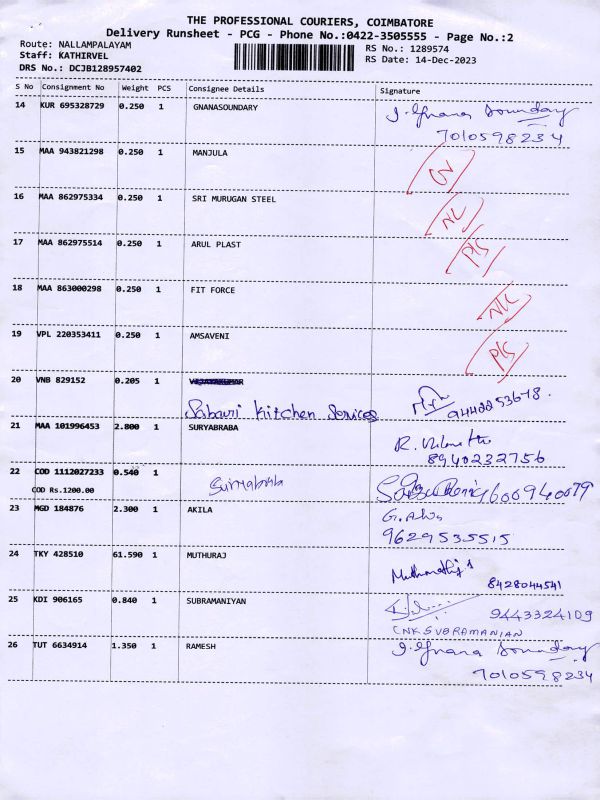 THE PROFESSIONAL COURIERS, COIMBATORE
Delivery Runsheet - PCG - Phone No.:0422-3505555 - Page No.:2
Route: NALLAMPALAYAM
RS No.: 1289574
Staff: KATHIRVEL
RS Date: 14-Dec-2023
DRS No.: DCJB128957402
S No Consignment No Weight PCS Consignee Details Signature
14 KUR 695328729 0.250 1 GNANASOUNDARY J. Gnana Sounday
7010598234
15 MAA 943821298 0.250 1 MANJULA
16 MAA 862975334 0.250 1 SRI MURUGAN STEEL
17 MAA 862975514 0.250 1 ARUL PLAST
18 MAA 863000298 0.250 1 FIT FORCE
19 VPL 220353411 0.250 1 AMSAVENI
20 VNB 829152 0.205 1 VIJAYAKUMAR
Sabauri kitchen Services 9442253678.
21 MAA 101996453 2.800 1 SURYABRABA
8940232756
22 COD 1112027233 0.540 1
COD Rs.1200.00
23 MGD 184876 2.300 1 AKILA
9629535515
24 TKY 428510 61.590 1 MUTHURAJ
8428044541
25 KDI 906165 0.840 1 SUBRAMANIYAN 9443324109
CNK SUBRAMANIAN
26 TUT 6634914 1.350 1 RAMESH J. Gnana Sounday
7010598234